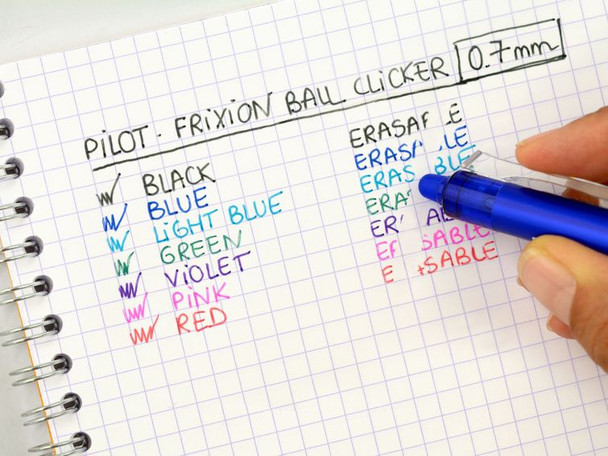 PILOT - FRIXION BALL CLICKER 0.7mm
BLACK
BLUE
LIGHT BLUE
GREEN
VIOLET
PINK
RED
ERASA E
ERASA LE
ERAS BLE
ERA
ER AB
E SABLE
E SABLE